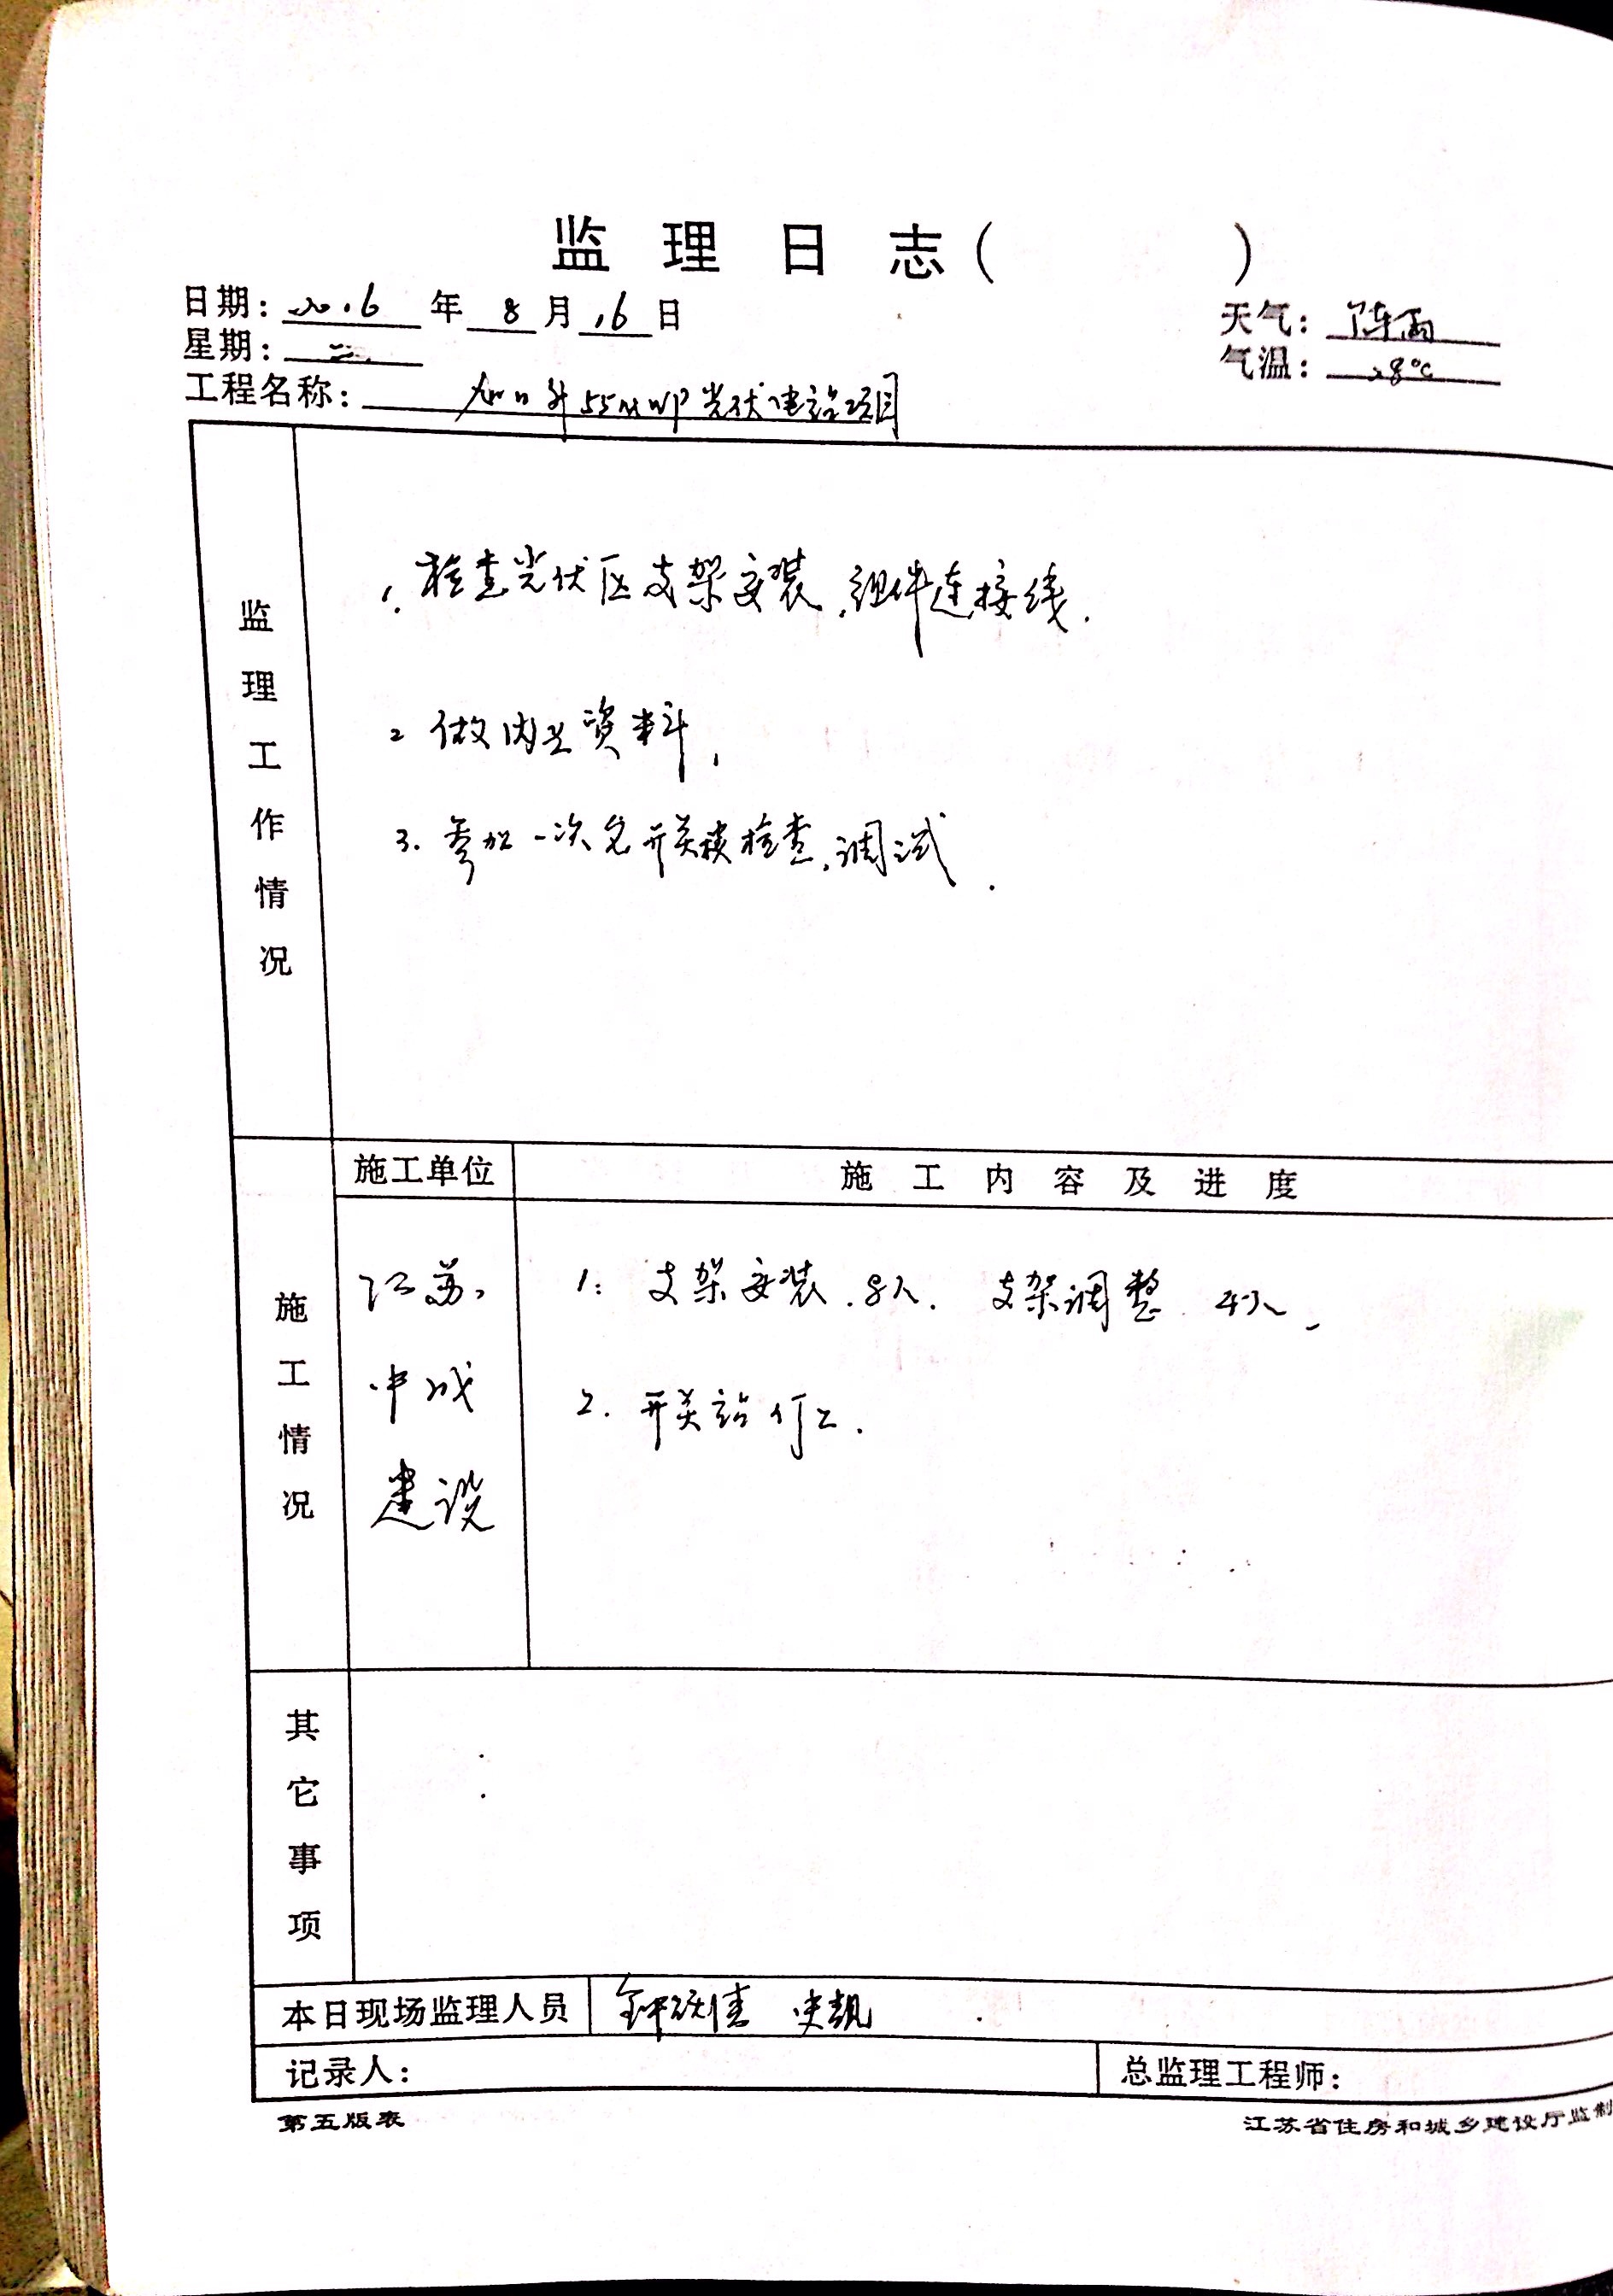 监 理 日 志 ( )
日期: 2016 年 8 月 16 日
天气: 阵雨
星期: 二
气温: 28℃
工程名称: 55MWP光伏电站项目
监理工作情况
1. 检查光伏区支架安装,组件连接线.
2 做内业资料,
3. 参加一次 开关 检查,调试.
施工情况
施工单位
施 工 内 容 及 进 度
江苏
中成
建设
1: 支架安装.8人. 支架调整 4人
2. 开关站停工.
其它事项
本日现场监理人员
记录人:
总监理工程师:
第五版表
江苏省住房和城乡建设厅监制